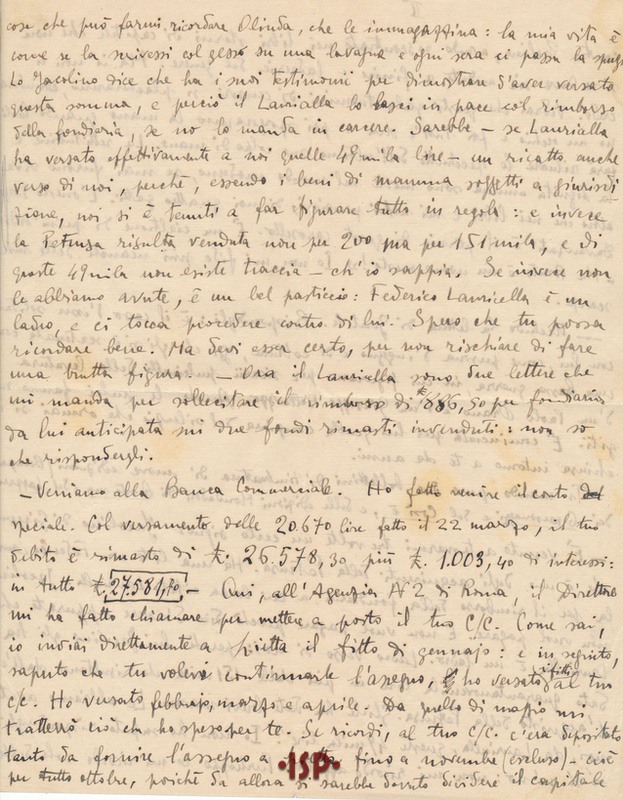 cose che può farmi ricordare Olinda, che le immagazzina: la mia vita è
come se la scrivessi col gesso su una lavagna e ogni sera ci passa la spug
Lo Jacolino dice che ha i suoi testimonii per dimostrare d'aver versato
questa somma, e perciò il Lauricella lo lasci in pace col rimborso
della fondiaria, se no lo manda in carcere. Sarebbe — se Lauricella
ha versato effettivamente a noi quelle 49 mila lire — un ricatto anche
verso di noi, perché, essendo i beni di mamma soggetti a giurisdi
zione, noi si è tenuti a far figurare tutto in regola: e invece
la Petrusa risulta venduta non per 200 ma per 151 mila, e di
queste 49 mila non esiste traccia — ch'io sappia. Se invece non
le abbiamo avute, è un bel pasticcio: Federico Lauricella è un
ladro, e ci tocca procedere contro di lui. Spero che tu possa
ricordare bene. Ma devi esser certo, per non rischiare di fare
una brutta figura. — Ora il Lauricella sono due lettere che
mi manda per sollecitare il rimborso di £ 886,50 per fondiaria
da lui anticipata sui due fondi rimasti invenduti: non so
che rispondergli.
— Veniamo alla Banca Commerciale. Ho fatto venire il conto
speciale. Col versamento delle 20.670 lire fatto il 22 marzo, il tuo
debito è rimasto di £. 26.578,30 più £. 1.003,40 di interessi:
in tutto £. 27.581,70 — Qui, all'Agenzia N 2 di Roma, il Direttore
mi ha fatto chiamare per mettere a posto il tuo C/C. Come sai,
io inviai direttamente a Pietta il fitto di gennajo: e in seguito,
saputo che tu volevi continuarle l'assegno, ho versato i fitti al tuo
c/c. Ho versato febbrajo, marzo e aprile. Da quello di maggio mi
tratterrò ciò che ho speso per te. Se ricordi, al tuo C/C. c'era depositato
tanto da fornire l'assegno a fino a novembre (escluso) — cioè
per tutto ottobre, poiché da allora si sarebbe dovuto dividere il capitale
·ISP·